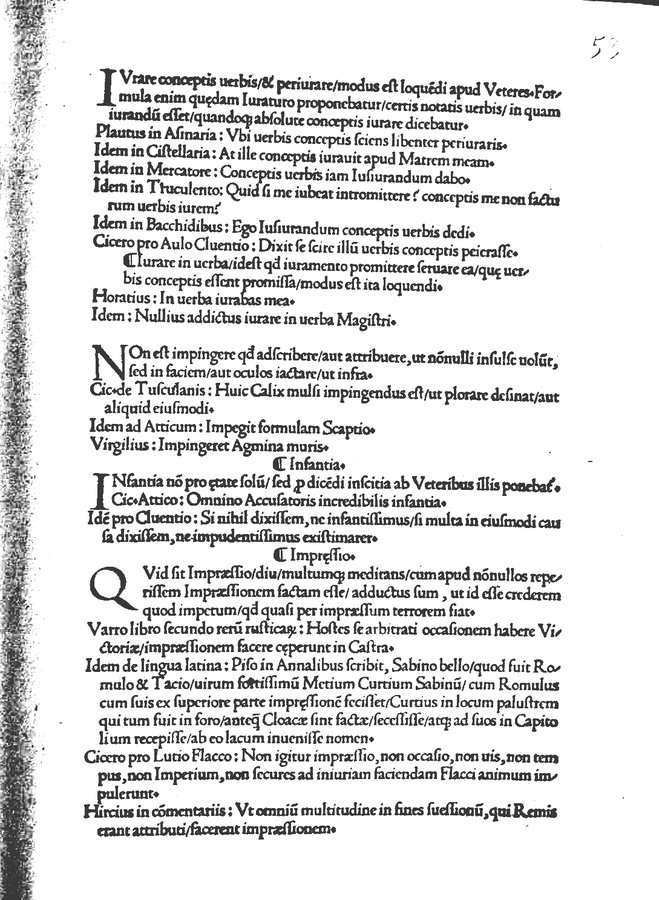 53
IVrare conceptis uerbis/& periurare/modus eſt loquẽdi apud Veteres.For⸗
mula enim quędam Iuraturo proponebatur/certis notatis uerbis/ in quam
iurandũ eſſet/quandoqꝫ abſolute conceptis iurare dicebatur.
Plautus in Aſinaria : Vbi uerbis conceptis ſciens libenter periuraris.
Idem in Ciſtellaria : At ille conceptis iurauit apud Matrem meam.
Idem in Mercatore : Conceptis uerbis iam Iuſiurandum dabo.
Idem in Truculento: Quid ſi me iubeat intromittere ? conceptis me non factu
rum uerbis iurem?
Idem in Bacchidibus : Ego Iuſiurandum conceptis uerbis dedi.
Cicero pro Aulo Cluentio : Dixit ſe ſcire illũ uerbis conceptis peieraſſe.
¶Iurare in uerba/ideſt qđ iuramento promittere ſeruare ea/quę uer⸗
bis conceptis eſſent promiſſa/modus eſt ita loquendi.
Horatius : In uerba iurabas mea.
Idem : Nullius addictus iurare in uerba Magiſtri.
NOn eſt impingere qđ adſcribere/aut attribuere, ut nõnulli inſulſe uolũt,
ſed in faciem/aut oculos iactare/ut infra.
Cic.de Tuſculanis : Huic Calix mulſi impingendus eſt/ut plorare deſinat/aut
aliquid eiuſmodi.
Idem ad Atticum : Impegit formulam Scaptio.
Virgilius : Impingeret Agmina muris.
¶ Infantia.
INfantia nõ pro ętate ſolũ/ ſed ꝓ dicẽdi inſcitia ab Veteribus illis ponebať.
Cic.Attico : Omnino Accuſatoris incredibilis infantia.
Idẽ pro Cluentio : Si nihil dixiſſem, ne infantiſſimus/ſi multa in eiuſmodi cau
ſa dixiſſem, ne impudentiſſimus exiſtimarer.
¶ Impręſſio.
QVid ſit Impræſſio/diu/multumqꝫ meditans/cum apud nõnullos repe⸗
riſſem Impræſſionem factam eſſe/ adductus ſum , ut id eſſe crederem
quod impetum/qđ quaſi per impræſſum terrorem fiat.
Varro libro ſecundo rerũ ruſticaꝝ : Hoſtes ſe arbitrati occaſionem habere Vi⸗
ctoriæ/impræſſionem facere cęperunt in Caſtra.
Idem de lingua latina : Piſo in Annalibus ſcribit, Sabino bello/quod fuit Ro⸗
mulo & Tacio/uirum fortiſſimũ Metium Curtium Sabinũ/ cum Romulus
cum ſuis ex ſuperiore parte impręſſionẽ feciſſet/Curtius in locum paluſtrem
qui tum fuit in foro/anteqꝫ Cloacæ ſint factæ/ſeceſſiſſe/atqꝫ ad ſuos in Capito
lium recepiſſe/ab eo lacum inueniſſe nomen.
Cicero pro Lutio Flacco : Non igitur impræſſio, non occaſio, non uis, non tem
pus, non Imperium, non ſecures ad iniuriam faciendam Flacci animum im⸗
pulerunt.
Hircius in cõmentariis : Vt omniũ multitudine in fines ſueſſionũ, qui Remis
erant attributi/facerent impræſſionem.